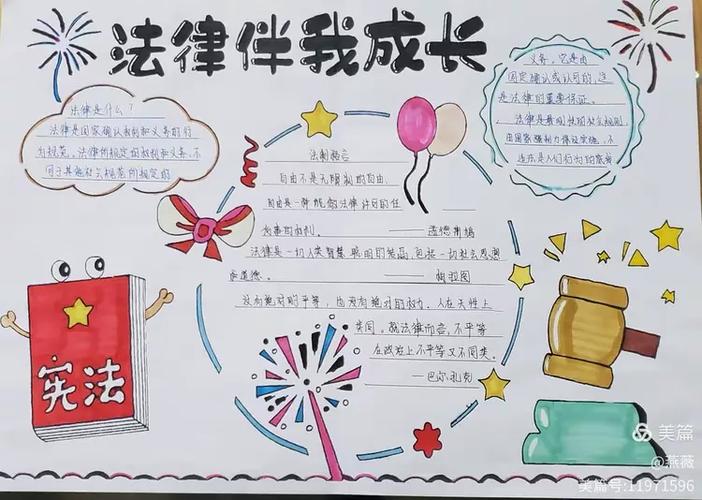 法律伴我成长
法律是什么？
法律是国家确认权利和义务的行
为规范，法律所规定的权利和义务，不
同于其他社会规范所规定的
义务，它是由
国家确认或认可的，这
是法律的重要保证。
法律是最明快的社会规则，
由国家强制力保证实施，不
法制格言
自由不是无限制的自由，
自由是一种能做法律许可的任
何事的权利。——孟德斯鸠
法律是一切人类智慧聪明的结晶，包括一切社会思想
和道德。——柏拉图
没有绝对的平等，也没有绝对的权力，人在天性上
类同，就法律而言，不平等
在政治上不平等又不同类。
——巴尔扎克
宪法
美篇
@燕薇
美篇号:11971596